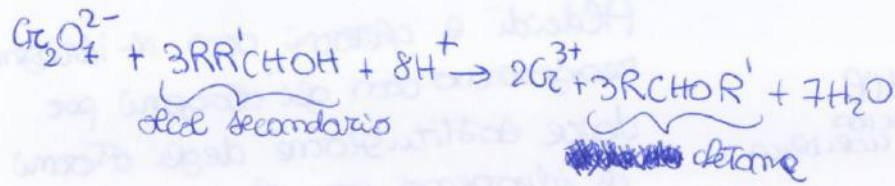 Cr₂O₇²⁻ + 3RR'CHOH + 8H⁺ → 2Cr³⁺ + 3RCHOR' + 7H₂O
alcol secondario
chetone